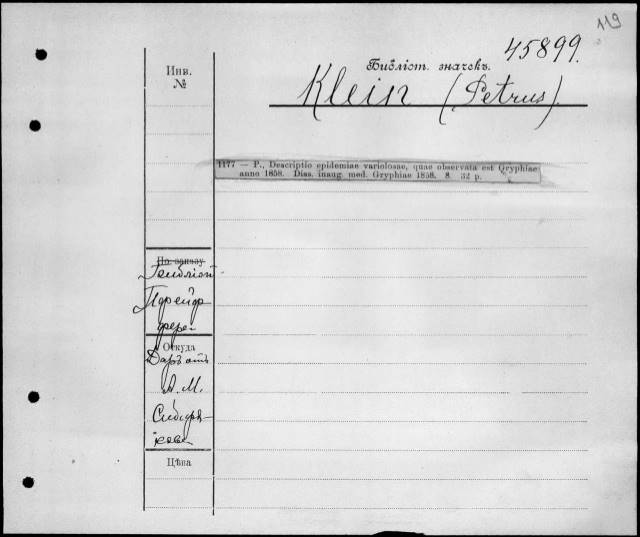 119
45899.
Библіот. значекъ.
Инв.
№
Klein (Petrus).
1177 — P., Descriptio epidemiae variolosae, quae observata est Gryphiae
anno 1858. Diss. inaug. med. Gryphiae 1858. 8. 32 p.
По заказу
Откуда
Даръ отъ
А. М.
Сибиря-
кова
Цѣна